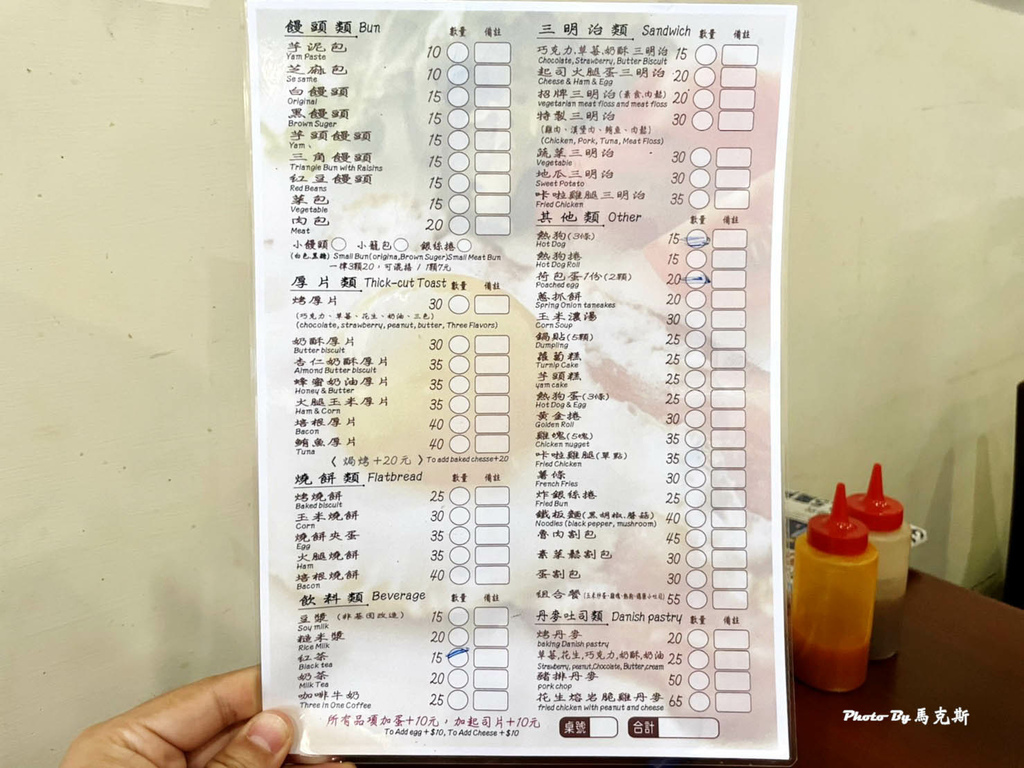 饅頭類 Bun 數量 備註
芋泥包 10
Yam Paste
芝麻包 10
Sesame
白饅頭 15
Original
黑饅頭 15
Brown Suger
芋頭饅頭 15
Yam
三角饅頭 15
Triangle Bun with Raisins
紅豆饅頭 15
Red Beans
菜包 15
Vegetable
肉包 20
Meat
小饅頭 小籠包 銀絲捲
(白色.黑糖) Small Bun(origina,Brown Suger)Small Meat Bun
一律3顆20,可混搭 / 1顆7元
厚片類 Thick-cut Toast 數量 備註
烤厚片 30
(巧克力、草莓、花生、奶油、三色)
(chocolate, strawberry, peanut, butter, Three Flavors)
奶酥厚片 30
Butter biscuit
杏仁奶酥厚片 35
Almond Butter biscuit
蜂蜜奶油厚片 35
Honey & Butter
火腿玉米厚片 35
Ham & Corn
培根厚片 40
Bacon
鮪魚厚片 40
Tuna
〈 焗烤+20元 〉To add baked chesse+20
燒餅類 Flatbread 數量 備註
烤燒餅 25
Baked biscuit
玉米燒餅 30
Corn
燒餅夾蛋 35
Egg
火腿燒餅 35
Ham
培根燒餅 40
Bacon
飲料類 Beverage 數量 備註
豆漿 (非基因改造) 15
Soy milk
糙米漿 20
Rice Milk
紅茶 15
Black tea
奶茶 20
Milk Tea
咖啡牛奶 25
Three In One Coffee
所有品項加蛋+10元,加起司片+10元
To Add egg +$10, To Add Cheese +$10
三明治類 Sandwich 數量 備註
巧克力,草莓,奶酥 三明治 15
Chocolate, Strawberry, Butter Biscuit
起司火腿蛋三明治 20
Cheese & Ham & Egg
招牌三明治(素食.肉鬆) 20
vegetarian meat floss and meat floss
特製三明治 30
(雞肉、漢堡肉、鮪魚、肉鬆)
(Chicken, Pork, Tuna, Meat Floss)
蔬菜三明治 30
Vegetable
地瓜三明治 30
Sweet Potato
咔啦雞腿三明治 35
Fried Chicken
其他類 Other 數量 備註
熱狗(3條) 15
Hot Dog
熱狗捲 15
Hot Dog Roll
荷包蛋1份(2顆) 20
Poached egg
蔥抓餅 20
Spring Onion taneakes
玉米濃湯 25
Corn Soup
鍋貼(5顆) 25
Dumpling
蘿蔔糕 25
Turnip Cake
芋頭糕 25
yam cake
熱狗蛋(3條) 25
Hot Dog & Egg
黃金捲 30
Golden Roll
雞塊(5塊) 35
Chicken nugget
咔啦雞腿(單點) 35
Fried Chicken
薯條 30
French Fries
炸銀絲捲 25
Fried Bun
鐵板麵(黑胡椒.蘑菇) 40
Noodles (black pepper, mushroom)
魯肉割包 45
素菜鬆割包 30
蛋割包 30
組合餐 55
丹麥吐司類 Danish pastry 數量 備註
烤丹麥 20
baking Danish pastry
草莓,花生,巧克力,奶酥,奶油 25
Strawberry, peanut,Chocolate, Butter,cream
豬排丹麥 50
pork chop
花生熔岩脆雞丹麥 65
fried chicken with peanut and cheese
桌號 合計
Photo By 馬克斯